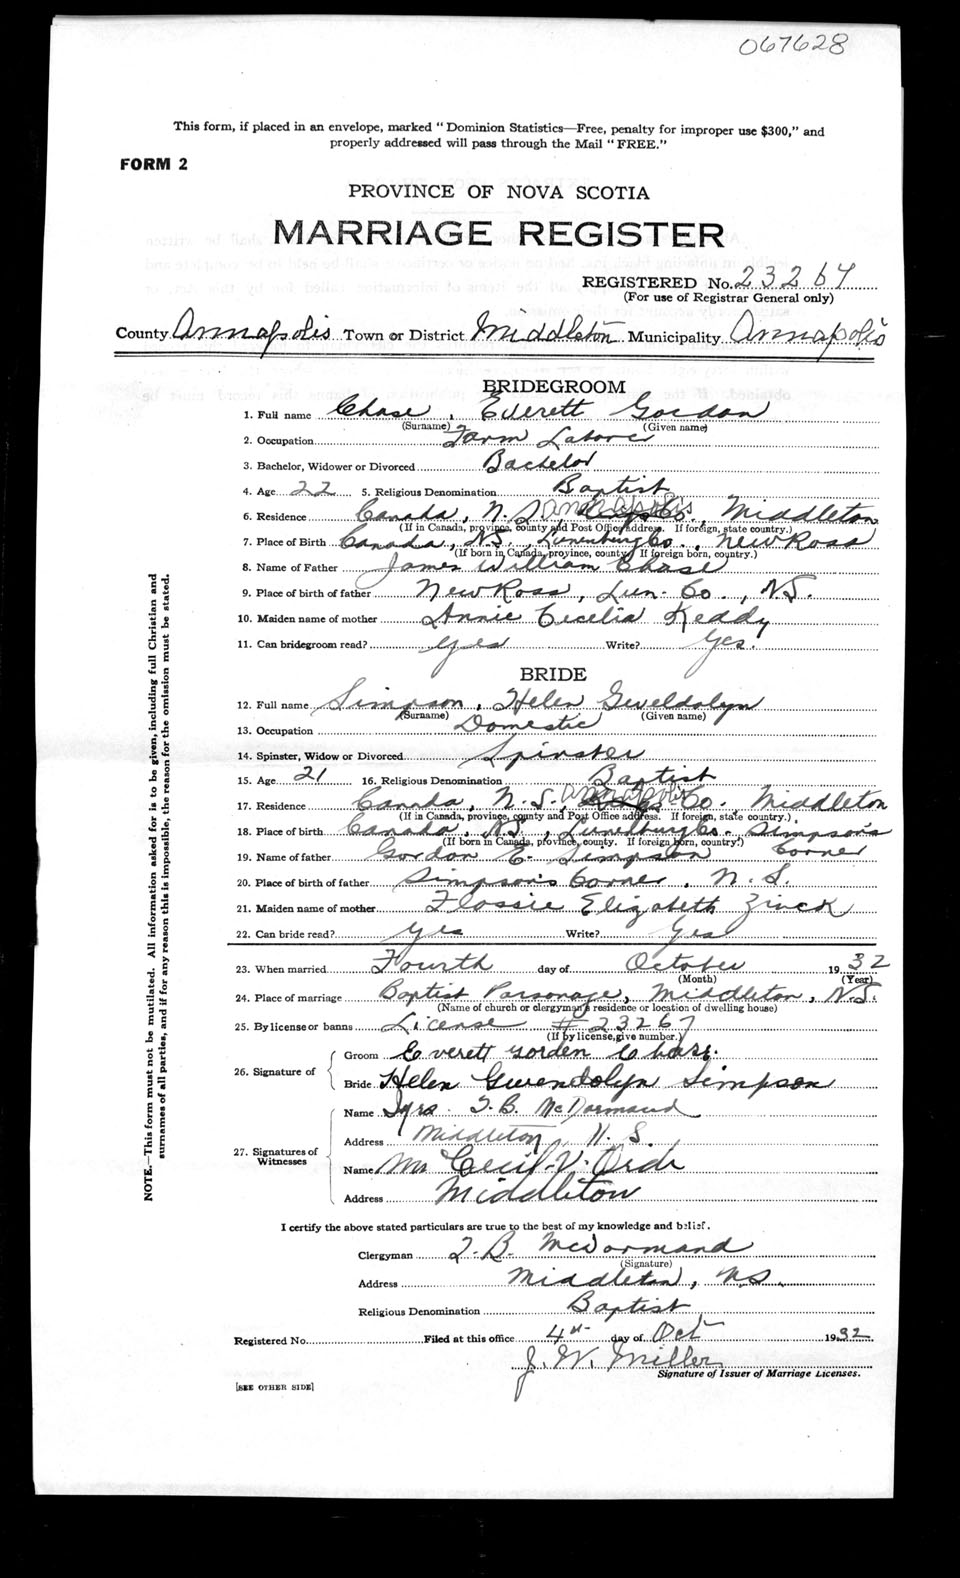 067628
This form, if placed in an envelope, marked "Dominion Statistics—Free, penalty for improper use $300," and
properly addressed will pass through the Mail "FREE."
FORM 2
PROVINCE OF NOVA SCOTIA
MARRIAGE REGISTER
REGISTERED No. 23267
(For use of Registrar General only)
County Annapolis Town or District Middleton Municipality Annapolis
BRIDEGROOM
1. Full name Chase, Everett Gordon
(Surname) (Given name)
2. Occupation Farm Laborer
3. Bachelor, Widower or Divorced Bachelor
4. Age 22 5. Religious Denomination Baptist
6. Residence Canada, N.S., Annapolis Co., Middleton
(If in Canada, province, county and Post Office address. If foreign, state country.)
7. Place of Birth Canada, N.S., Lunenburg Co., New Ross
(If born in Canada, province, county. If foreign born, country.)
8. Name of Father James William Chase
9. Place of birth of father New Ross, Lun. Co., N.S.
10. Maiden name of mother Annie Cecelia Keddy
11. Can bridegroom read? Yes Write? Yes.
BRIDE
12. Full name Simpson, Helen Gweldolyn
(Surname) (Given name)
13. Occupation Domestic
14. Spinster, Widow or Divorced Spinster
15. Age 21 16. Religious Denomination Baptist
17. Residence Canada, N.S., Annapolis Co., Middleton
(If in Canada, province, county and Post Office address. If foreign, state country.)
18. Place of birth Canada, N.S., Lunenburg Co. Simpson's
(If born in Canada, province, county. If foreign born, country.) Corner
19. Name of father Gordon E. Simpson
20. Place of birth of father Simpson's Corner, N.S.
21. Maiden name of mother Flossie Elizabeth Zinck
22. Can bride read? Yes Write? Yes
23. When married Fourth day of October 1932
(Month) (Year)
24. Place of marriage Baptist Parsonage, Middleton, N.S.
(Name of church or clergyman's residence or location of dwelling house)
25. By license or banns License # 23267
(If by license, give number.)
26. Signature of
Groom Everett Gorden Chase.
Bride Helen Gwendolyn Simpson
27. Signatures of Witnesses
Name Mrs. T.B. McDormand
Address Middleton, N.S.
Name Mr Cecil V. Orde
Address Middleton
I certify the above stated particulars are true to the best of my knowledge and belief.
Clergyman T.B. McDormand
(Signature)
Address Middleton, N.S.
Religious Denomination Baptist
Registered No. Filed at this office 4th day of Oct 1932
J. W. Miller
Signature of Issuer of Marriage Licenses.
[SEE OTHER SIDE]
NOTE.—This form must not be mutilated. All information asked for is to be given, including full Christian and
surnames of all parties, and if for any reason this is impossible, the reason for the omission must be stated.